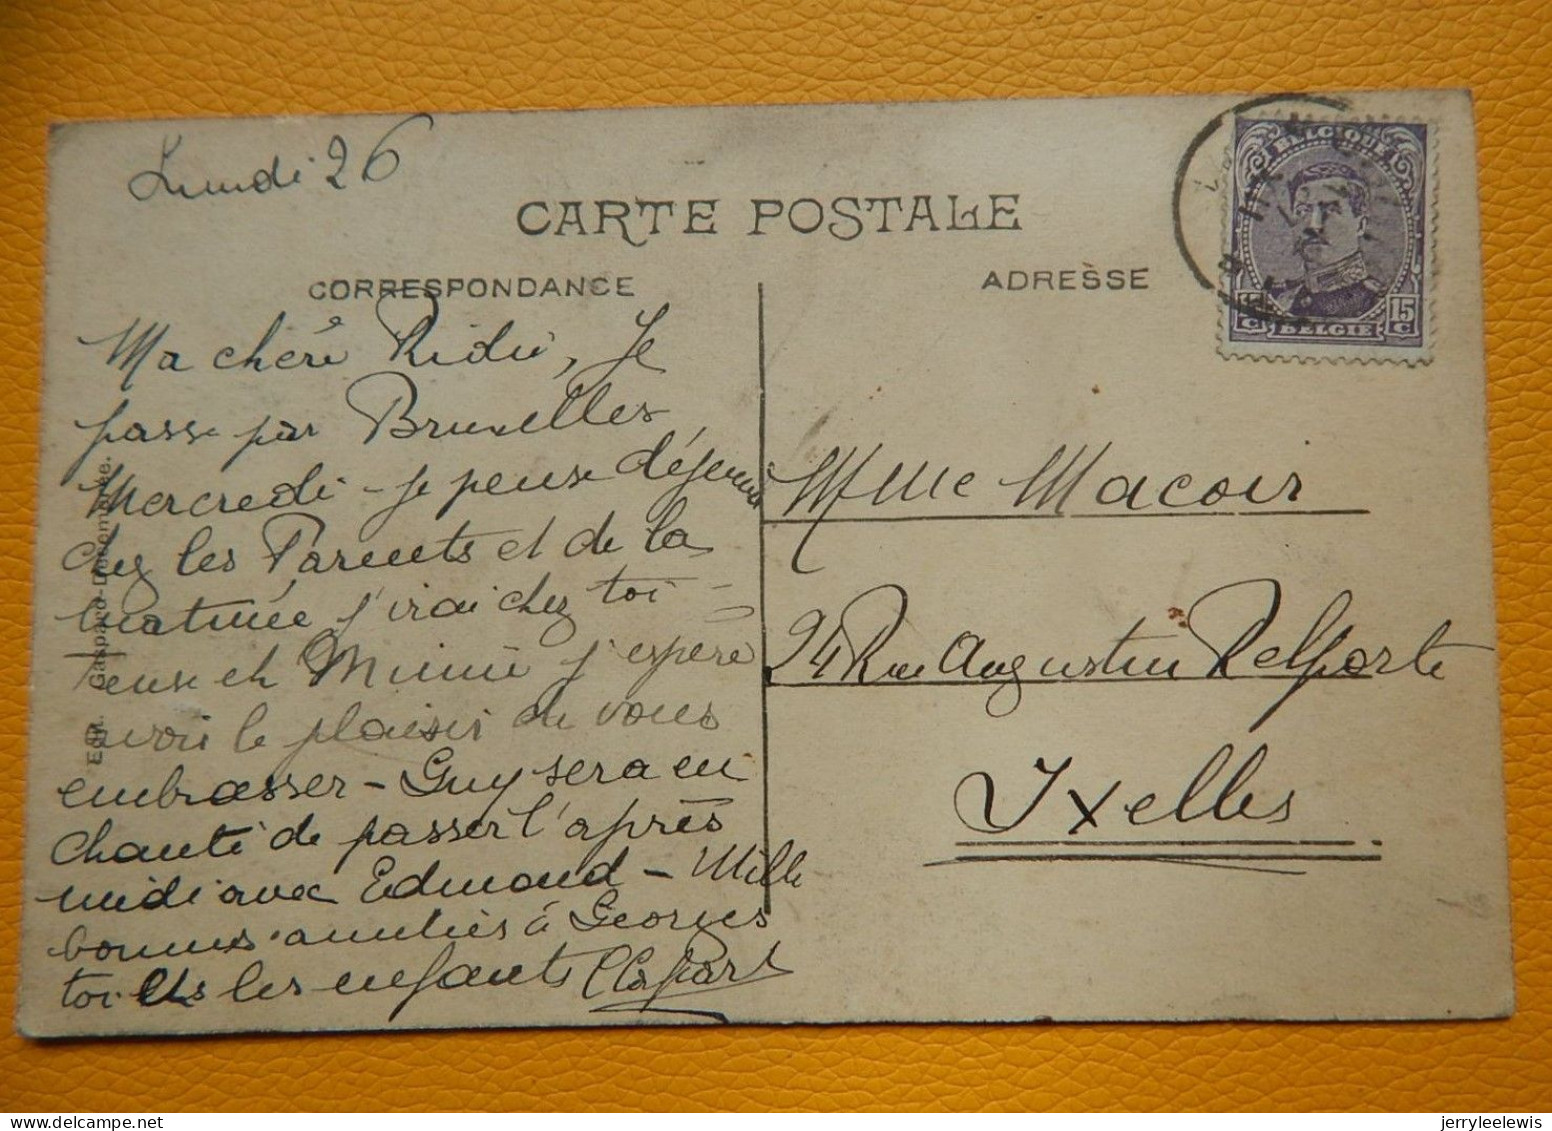 Lundi 26
CARTE POSTALE
CORRESPONDANCE
ADRESSE
BELGIQUE
15 C
15 C
BELGIE
Ma chère Didie, Je
passe par Bruxelles
Mercredi - je pense déjeuner
chez les Parents et de là
j'irai chez toi
et Mimie j'espère
avoir le plaisir de vous
embrasser - Guy sera en
chanté de passer l'après
midi avec Edmond - Mille
bonnes amitiés à Georges
toi et les enfants
Mme Macoir
24 Rue Augustin Delporte
Ixelles
Edit. Gaspard-
jerryleelewis